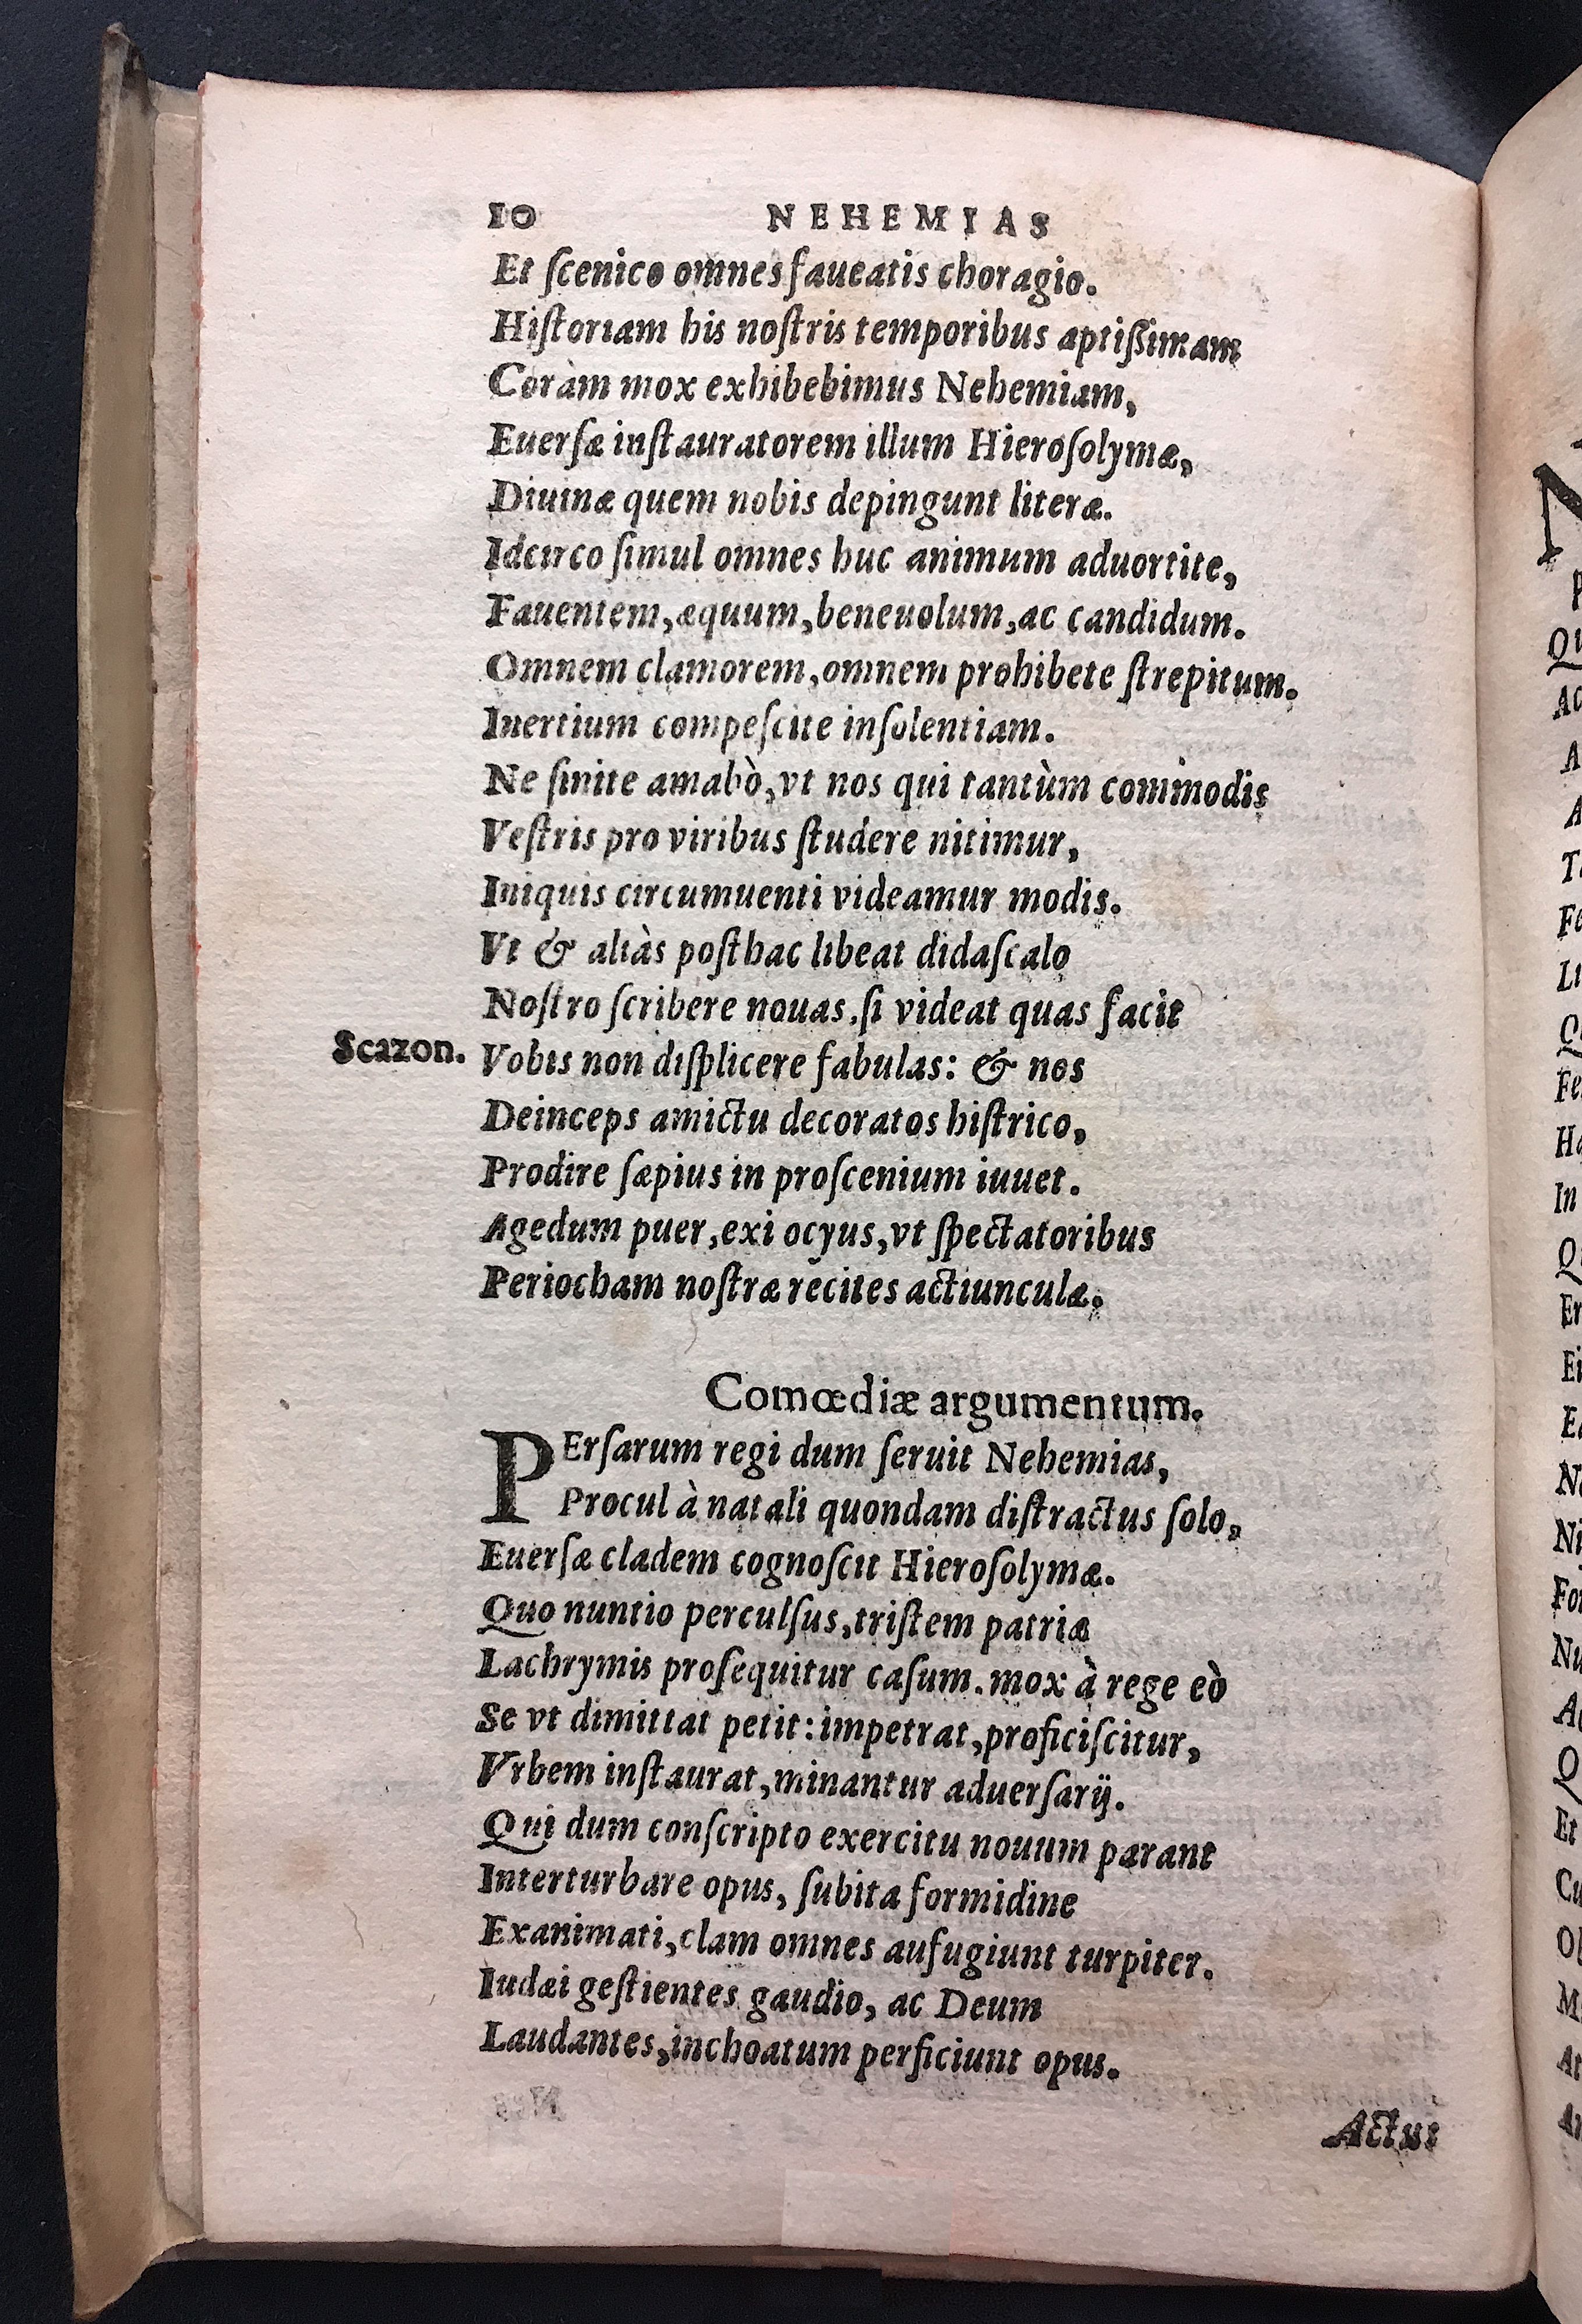 10 NEHEMIAS
Et ſcenico omnes faueatis choragio.
Hiſtoriam his noſtris temporibus aptiſſimam
Coràm mox exhibebimus Nehemiam,
Euerſæ inſtauratorem illum Hieroſolymæ,
Diuinæ quem nobis depingunt literæ.
Idcirco ſimul omnes huc animum aduortite,
Fauentem, æquum, beneuolum, ac candidum.
Omnem clamorem, omnem prohibete ſtrepitum.
Inertium compeſcite inſolentiam.
Ne ſinite amabò, vt nos qui tantùm commodis
Veſtris pro viribus ſtudere nitimur,
Iniquis circumuenti videamur modis.
Vt & aliàs poſthac libeat didaſcalo
Noſtro ſcribere nouas, ſi videat quas facit
Scazon. Vobis non diſplicere fabulas: & nos
Deinceps amictu decoratos hiſtrico,
Prodire ſæpius in proſcenium iuuet.
Agedum puer, exi ocyus, vt ſpectatoribus
Periocham noſtræ recites actiunculæ.
Comœdiæ argumentum.
PErſarum regi dum ſeruit Nehemias,
Procul à natali quondam diſtractus ſolo,
Euerſæ cladem cognoſcit Hieroſolymæ.
Quo nuntio perculſus, triſtem patriæ
Lachrymis proſequitur caſum. mox à rege eò
Se vt dimittat petit: impetrat, proficiſcitur,
Vrbem inſtaurat, minantur aduerſarij.
Qui dum conſcripto exercitu nouum parant
Interturbare opus, ſubita formidine
Exanimati, clam omnes aufugiunt turpiter.
Iudæi geſtientes gaudio, ac Deum
Laudantes, inchoatum perficiunt opus.
Actus